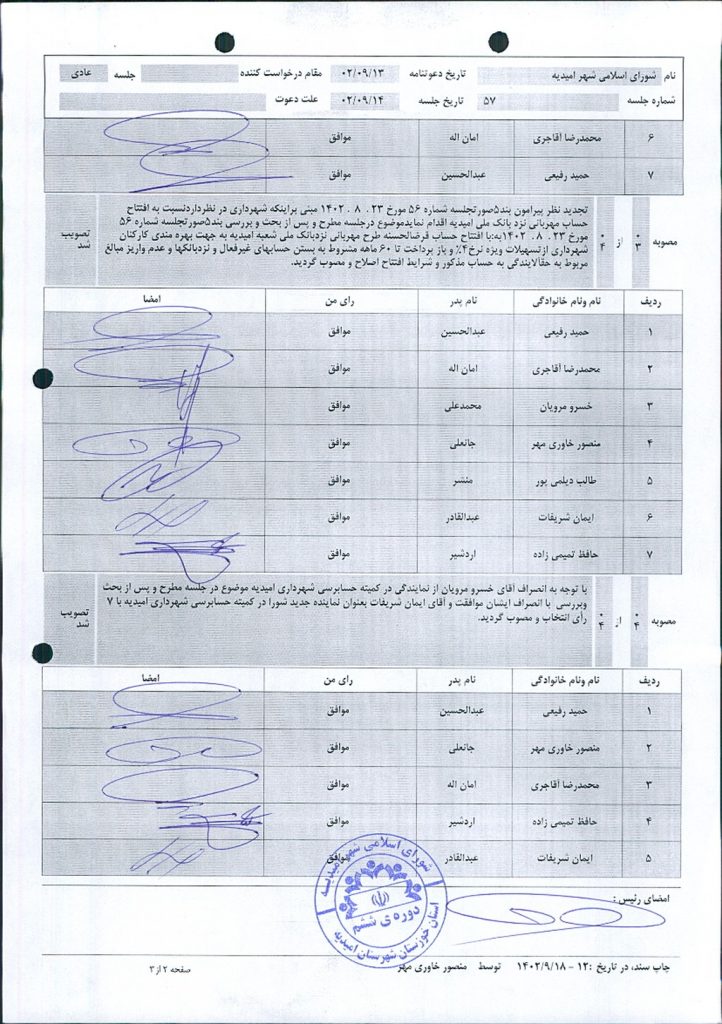 نام شورای اسلامی شهر امیدیه تاریخ دعوتنامه ۰۲/۰۹/۱۳ مقام درخواست کننده جلسه عادی
شماره جلسه ۵۷ تاریخ جلسه ۰۲/۰۹/۱۴ علت دعوت
۶ محمدرضا آقاجری امان اله موافق
۷ حمید رفیعی عبدالحسین موافق
تجدید نظر پیرامون بند۵صورتجلسه شماره ۵۶ مورخ ۲۳ . ۸ . ۱۴۰۲ مبنی براینکه شهرداری در نظرداردنسبت به افتتاح
حساب مهربانی نزد بانک ملی امیدیه اقدام نمایدموضوع درجلسه مطرح و پس از بحث و بررسی بند۵صورتجلسه شماره ۵۶
مصوبه ۰۳ از ۰۴ مورخ ۲۳ . ۸ . ۱۴۰۲به:با افتتاح حساب قرضالحسنه طرح مهربانی نزدبانک ملی شعبه امیدیه به جهت بهره مندی کارکنان تصویب شد
شهرداری ازتسهیلات ویژه نرخ۴٪ و باز پرداخت تا ۶۰ ماهه مشروط به بستن حسابهای غیرفعال و نزدبانکها و عدم واریز مبالغ
مربوط به حقآلایندگی به حساب مذکور و شرایط افتتاح اصلاح و مصوب گردید.
ردیف نام ونام خانوادگی نام پدر رای من امضا
۱ حمید رفیعی عبدالحسین موافق
۲ محمدرضا آقاجری امان اله موافق
۳ خسرو مرویان محمدعلی موافق
۴ منصور خاوری مهر جانعلی موافق
۵ طالب دیلمی پور منشر موافق
۶ ایمان شریفات عبدالقادر موافق
۷ حافظ تمیمی زاده اردشیر موافق
با توجه به انصراف آقای خسرو مرویان از نمایندگی در کمیته حسابرسی شهرداری امیدیه موضوع در جلسه مطرح و پس از بحث
مصوبه ۰۴ از ۰۴ وبررسی با انصراف ایشان موافقت و آقای ایمان شریفات بعنوان نماینده جدید شورا در کمیته حسابرسی شهرداری امیدیه با ۷ تصویب شد
رأی انتخاب و مصوب گردید.
ردیف نام ونام خانوادگی نام پدر رای من امضا
۱ حمید رفیعی عبدالحسین موافق
۲ منصور خاوری مهر جانعلی موافق
۳ محمدرضا آقاجری امان اله موافق
۴ حافظ تمیمی زاده اردشیر موافق
۵ ایمان شریفات عبدالقادر موافق
شورای اسلامی شهر امیدیه
دوره ی ششم
استان خوزستان شهرستان امیدیه
امضای رئیس :
چاپ سند، در تاریخ :۱۲ - ۱۴۰۲/۹/۱۸ توسط منصور خاوری مهر صفحه ۲ از ۳